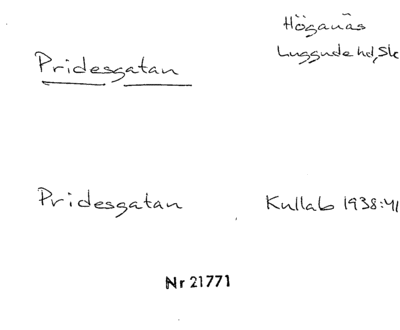 Höganäs
Pridesgatan
Luggude hd, Sk
Pridesgatan
Kullab 1938:41
Nr 21771